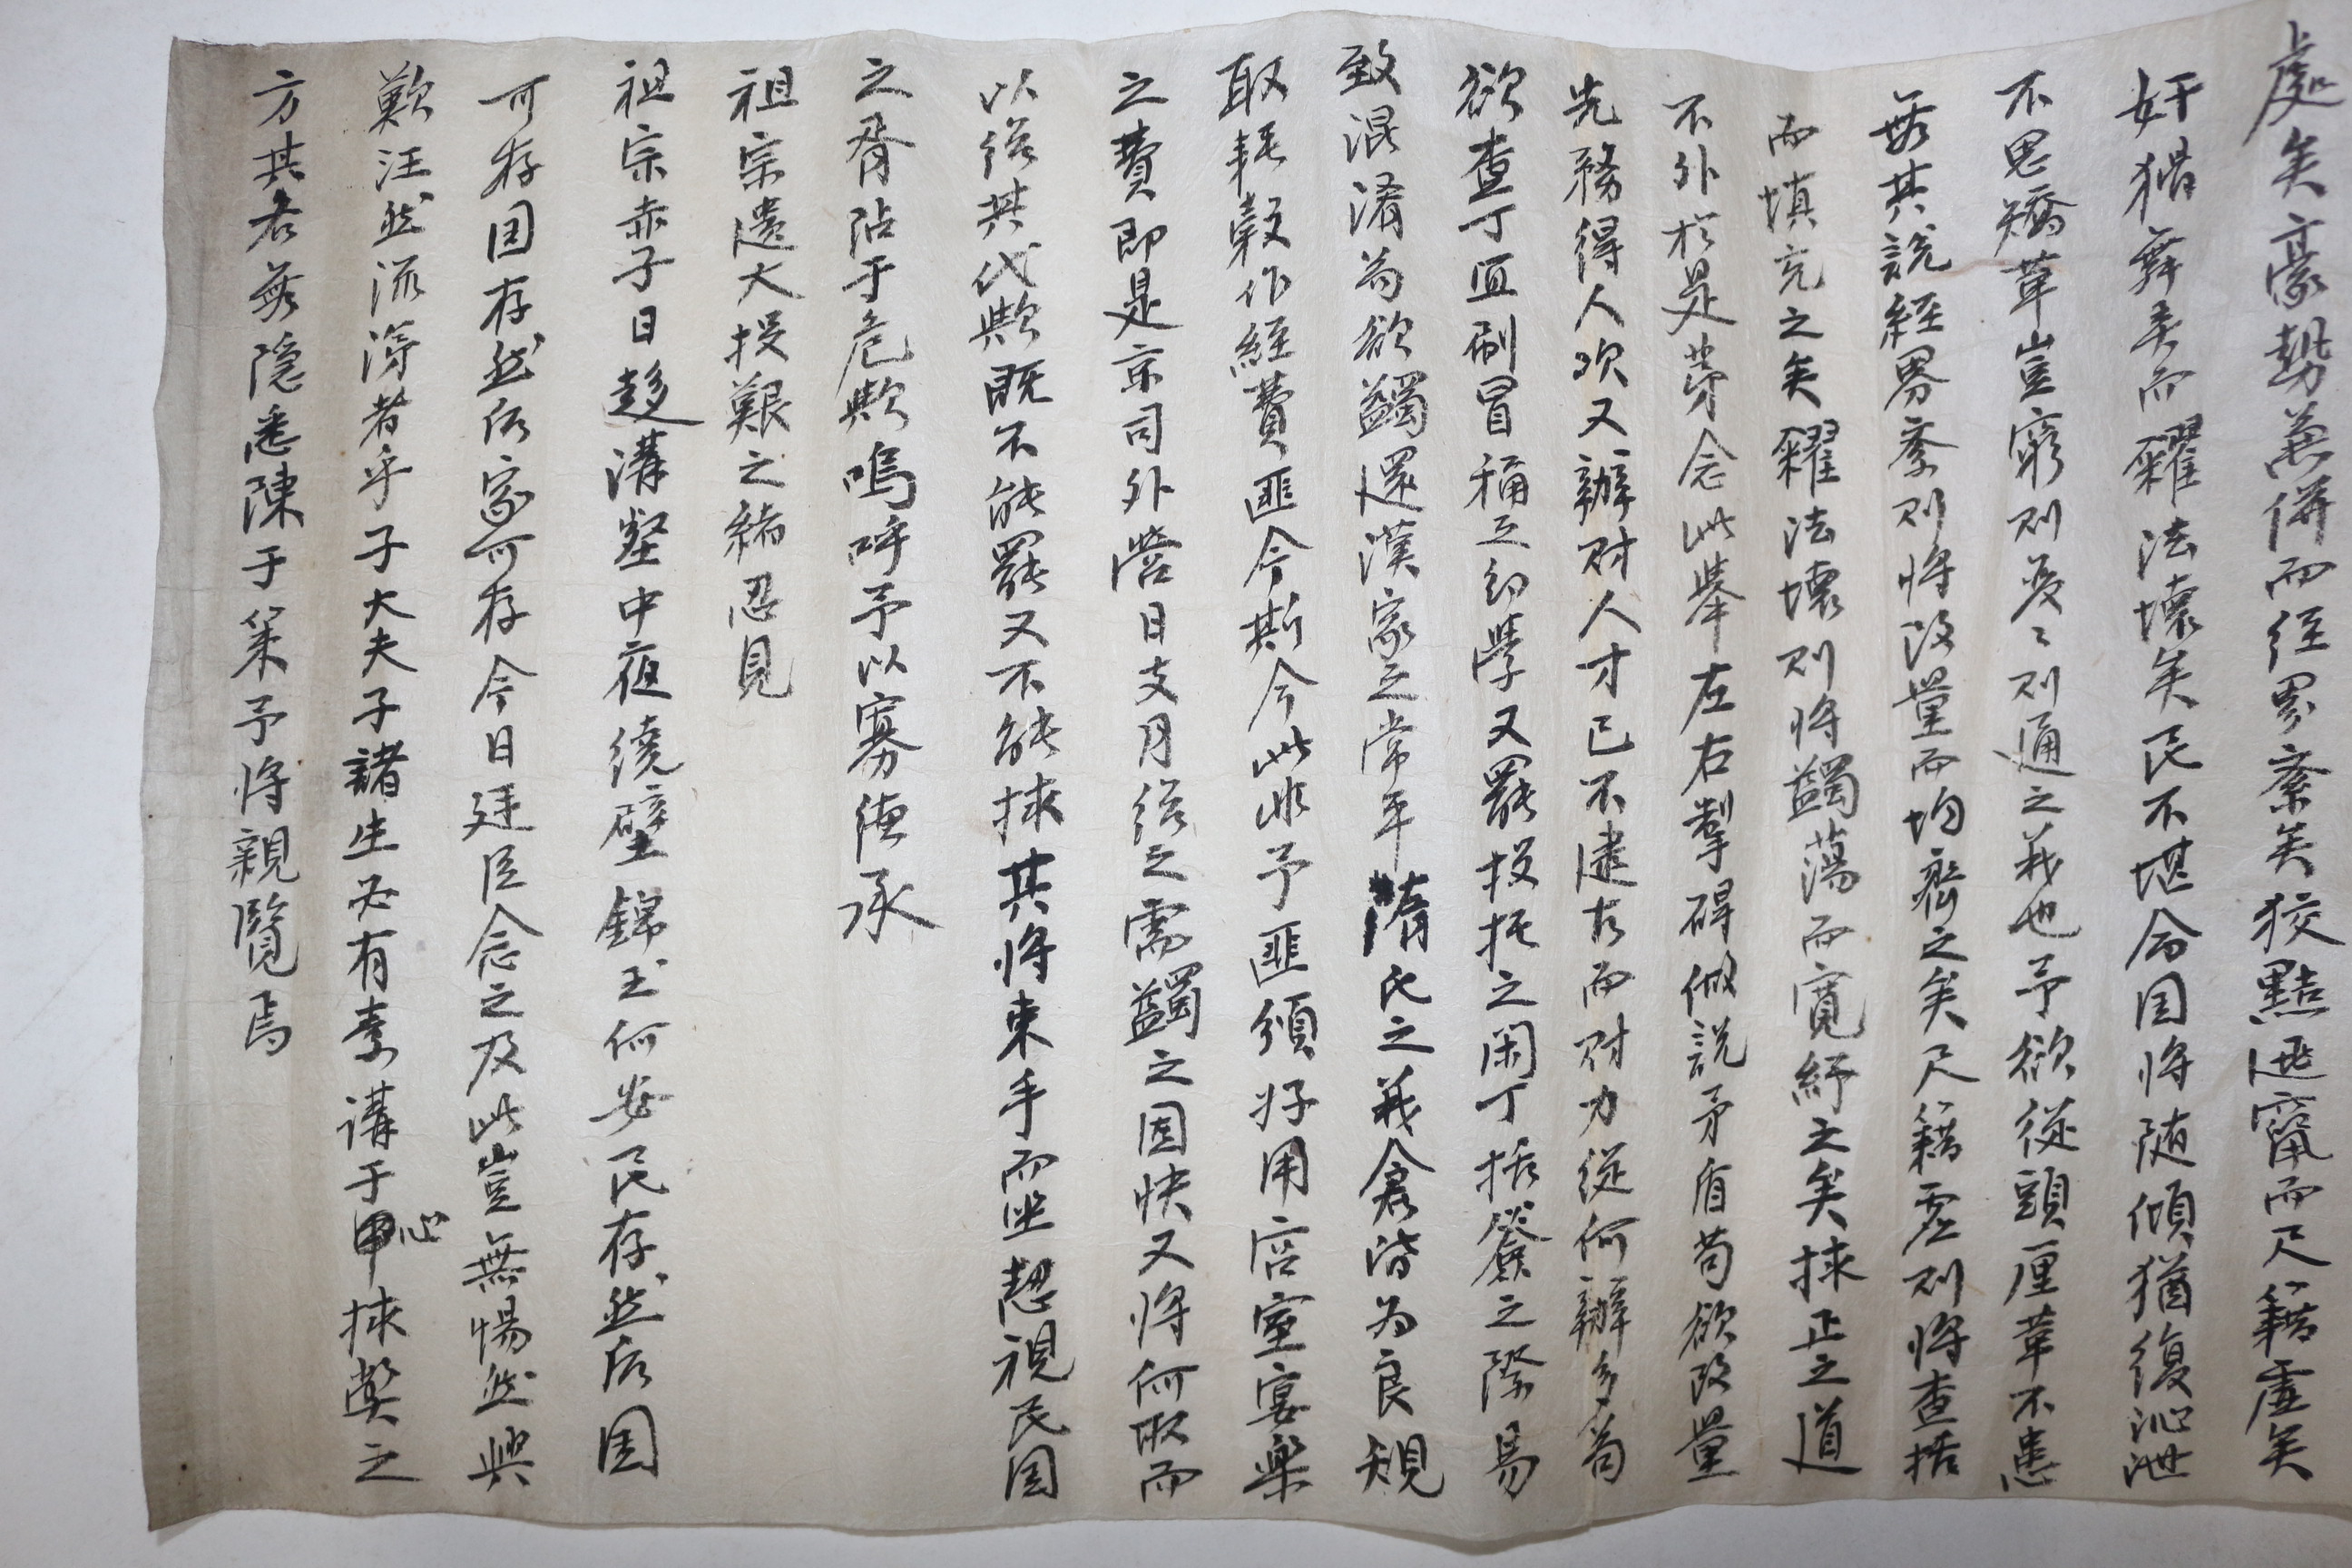 處矣豪勢兼倂而經界紊矣狡黠逃竄而尺籍虛矣
奸猾舞弄而糶法壞矣民不堪命国将随傾猶復沁泄
不思矯革豈窮則变〻則通之義也予欲從頭厘革不患
無其說經界紊則将改量而均齊之矣尺籍虛則将查括
而塡充之矣糶法壞則将蠲蕩而寬紓之矣捄正之道
不外於是苐念此擧左右掣碍做說矛盾苟欲改量
先務得人次又辦財人才已不逮古而財力從何辦多苟
欲查丁宜刷冒稱之幼學又罷投托之閑丁括簽之際易
致混淆苟欲蠲還漢家之常平隋氏之義倉皆为良規
取耗穀作經費匪今斯今此非予匪頒好用宮室宴樂
之費即是京司外營日支月給之需蠲之固快又将何取而
以給其代歟既不能罷又不能捄其将束手而坐恝視民国
之胥阽于危歟嗚呼予以寡德承
祖宗遺大投艱之緖忍見
祖宗赤子日趍溝壑中夜繞壁錦玉何安民存然后国
可存国存然后家可存今日廷臣念之及此豈無惕然興
歎汪然流涕者乎子大夫子諸生必有素講于心捄弊之
方其各無隐悉陳于策予将親覽焉